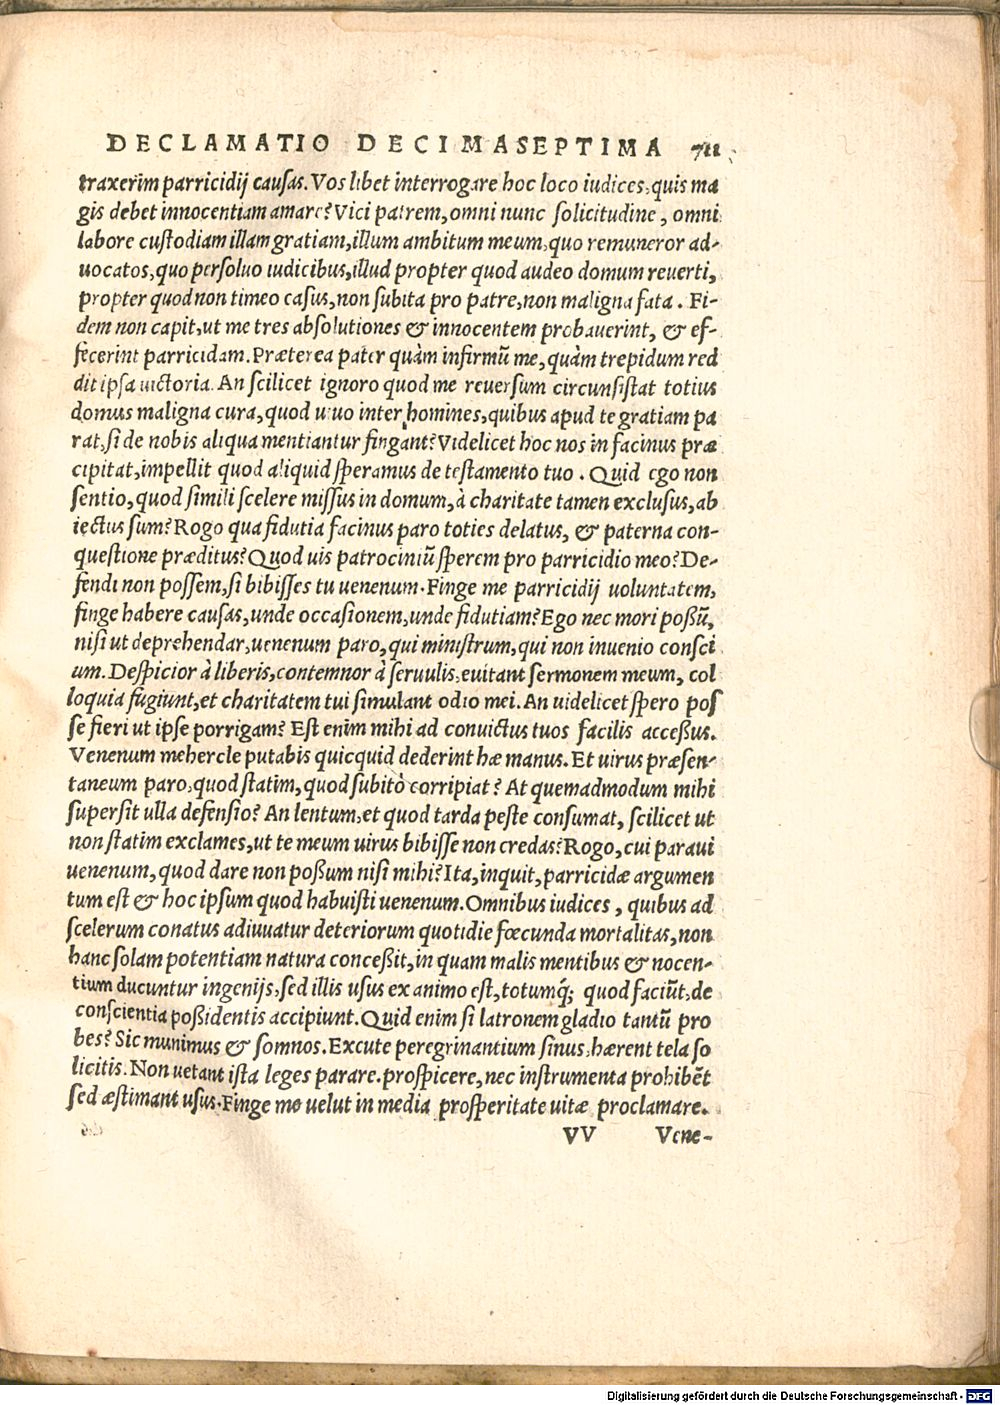 DECLAMATIO DECIMASEPTIMA 711
traxerim parricidij causas. Vos libet interrogare hoc loco iudices, quis ma
gis debet innocentiam amare? Vici patrem, omni nunc solicitudine, omni
labore custodiam illam gratiam, illum ambitum meum, quo remuneror ad-
uocatos, quo persoluo iudicibus, illud propter quod audeo domum reuerti,
propter quod non timeo casus, non subita pro patre, non maligna fata. Fi-
dem non capit, ut me tres absolutiones & innocentem probauerint, & ef-
fecerint parricidam. Præterea pater quàm infirmũ me, quàm trepidum red
dit ipsa uictoria. An scilicet ignoro quod me reuersum circunsistat totius
domus maligna cura, quod uiuo inter homines, quibus apud te gratiam pa
rat, si de nobis aliqua mentiantur fingant? Videlicet hoc nos in facinus præ
cipitat, impellit quod aliquid speramus de testamento tuo. Quid ego non
sentio, quod simili scelere missus in domum, à charitate tamen exclusus, ab
iectus sum? Rogo qua fidutia facinus paro toties delatus, & paterna con-
questione præditus? Quod uis patrociniũ sperem pro parricidio meo? De-
fendi non possem, si bibisses tu uenenum. Finge me parricidij uoluntatem,
finge habere causas, unde occasionem, unde fidutiam? Ego nec mori possũ,
nisi ut deprehendar, uenenum paro, qui ministrum, qui non inuenio consci
um. Despicior à liberis, contemnor à seruulis, euitant sermonem meum, col
loquia fugiunt, et charitatem tui simulant odio mei. An uidelicet spero pos
se fieri ut ipse porrigam? Est enim mihi ad conuictus tuos facilis accessus.
Venenum mehercle putabis quicquid dederint hæ manus. Et uirus præsen-
taneum paro, quod statim, quod subitò corripiat? At quemadmodum mihi
supersit ulla defensio? An lentum, et quod tarda peste consumat, scilicet ut
non statim exclames, ut te meum uirus bibisse non credas? Rogo, cui paraui
uenenum, quod dare non possum nisi mihi? Ita, inquit, parricidæ argumen
tum est & hoc ipsum quod habuisti uenenum. Omnibus iudices, quibus ad
scelerum conatus adiuuatur deteriorum quotidie fœcunda mortalitas, non
hanc solam potentiam natura concessit, in quam malis mentibus & nocen-
tium ducuntur ingenijs, sed illis usus ex animo est, totumq́; quod faciũt, de
conscientia possidentis accipiunt. Quid enim si latronem gladio tantũ pro
bes? Sic munimus & somnos. Excute peregrinantium sinus, hærent tela so
licitis. Non uetant ista leges parare, prospicere, nec instrumenta prohibẽt
sed æstimant usus. Finge me uelut in media prosperitate uitæ proclamare.
VV Vene-
Digitalisierung gefördert durch die Deutsche Forschungsgemeinschaft - DFG